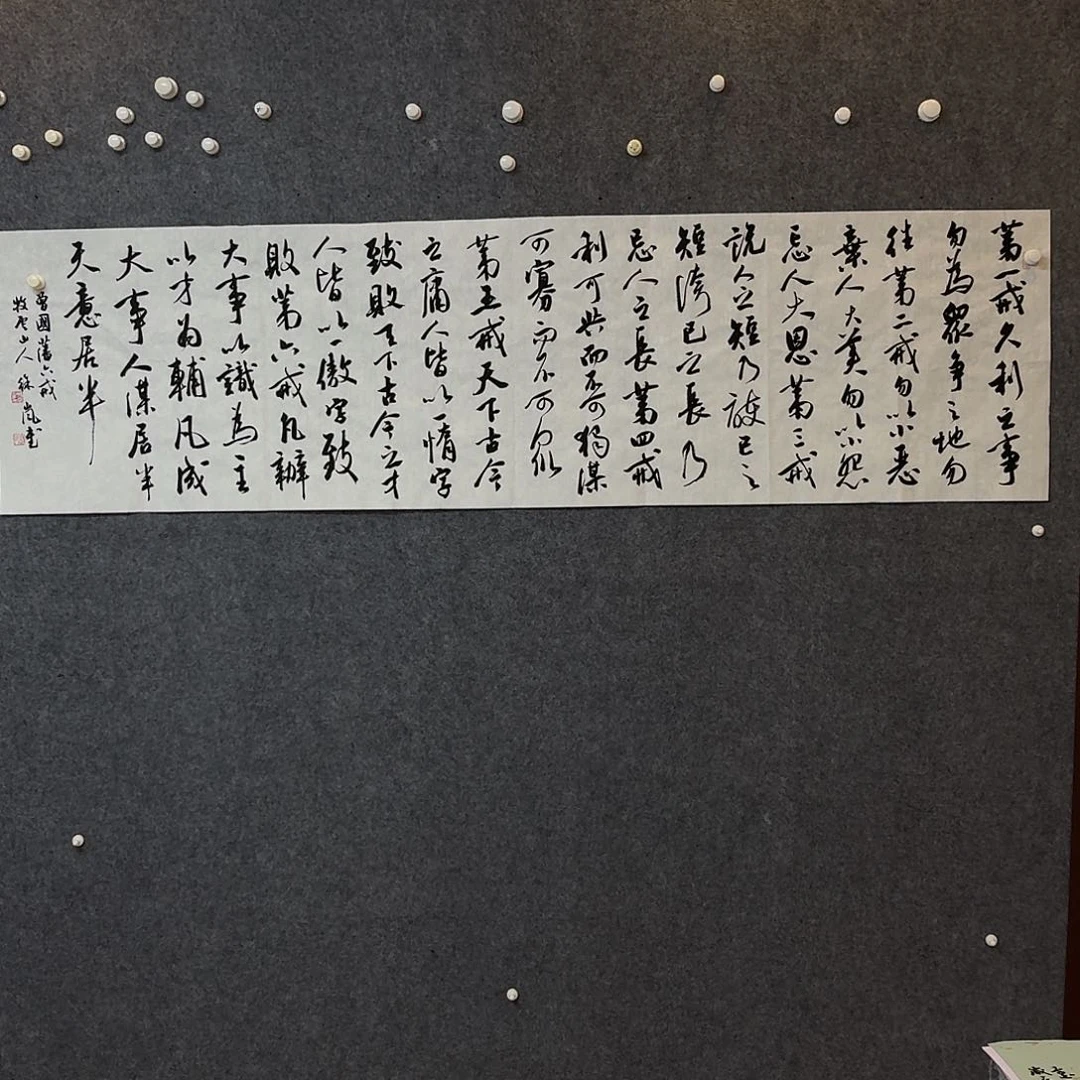 第一戒久利之事
勿為眾争之地勿
往第二戒勿以小惡
棄人大美勿以小怨
忘人大恩第三戒
説人之短乃護己之
短誇己之長乃
忌人之長第四戒
利可共而不可獨謀
可寡而不可眾
第五戒天下古今
之庸人皆以惰字
致敗天下古今之才
人皆以一傲字致
敗第六戒凡辦
大事以識為主
以才為輔凡成
大事人謀居半
天意居半
曾國藩六戒
牧雲山人 徐嵐書